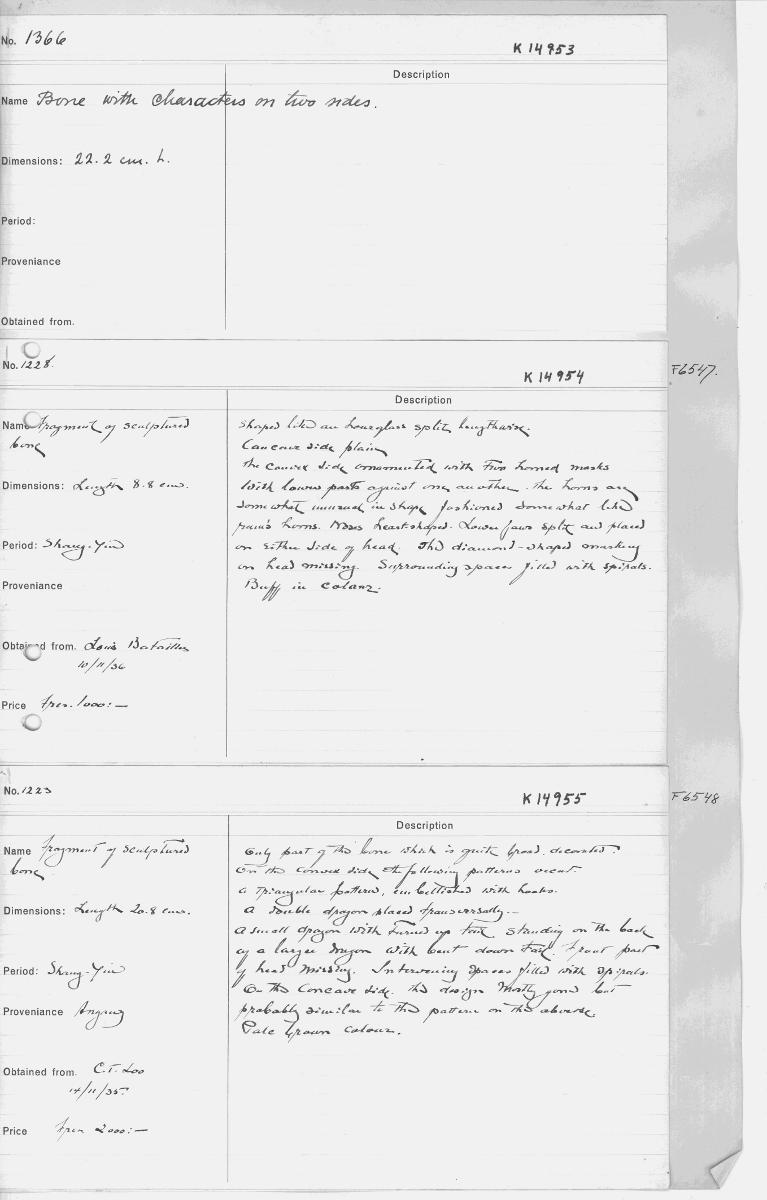 No. 1366
K 14953
Description
Name Bone with characters on two sides.
Dimensions: 22.2 cm. L.
Period:
Proveniance
Obtained from.
No. 1228.
K 14954
F6547.
Description
Name Fragment of sculptured
bone
Dimensions: Length 8.8 cms.
Period: Shang-Yin
Proveniance
Obtained from. Louis Bataille
10/11/36
Price Frcs. 1000:—
Shaped like an hourglass split lengthwise.
Concave side plain
The convex side ornamented with two horned masks
with lower parts against one another. The horns are
somewhat unusual in shape fashioned somewhat like
ram's horns. Noses heart-shaped. Lower jaws split and placed
on either side of head. The diamond-shaped marking
on head missing. Surrounding spaces filled with spirals.
Buff in colour.
No. 1223
K 14955
F6548
Description
Name Fragment of sculptured
bone
Dimensions: Length 20.8 cms.
Period: Shang-Yin
Proveniance Anyang
Obtained from. C.T. Loo
14/11/35
Price Frcs 2000:—
Only part of the bone which is quite broad, decorated.
On the convex side the following patterns occur:
a triangular pattern, embellished with hooks.
A double dragon placed transversally.—
A small dragon with turned up tail standing on the back
of a larger dragon with bent down tail. Front part
of head missing. Intervening spaces filled with spirals.
On the concave side, the design mostly gone but
probably similar to the pattern on the obverse.
Pale brown colour.